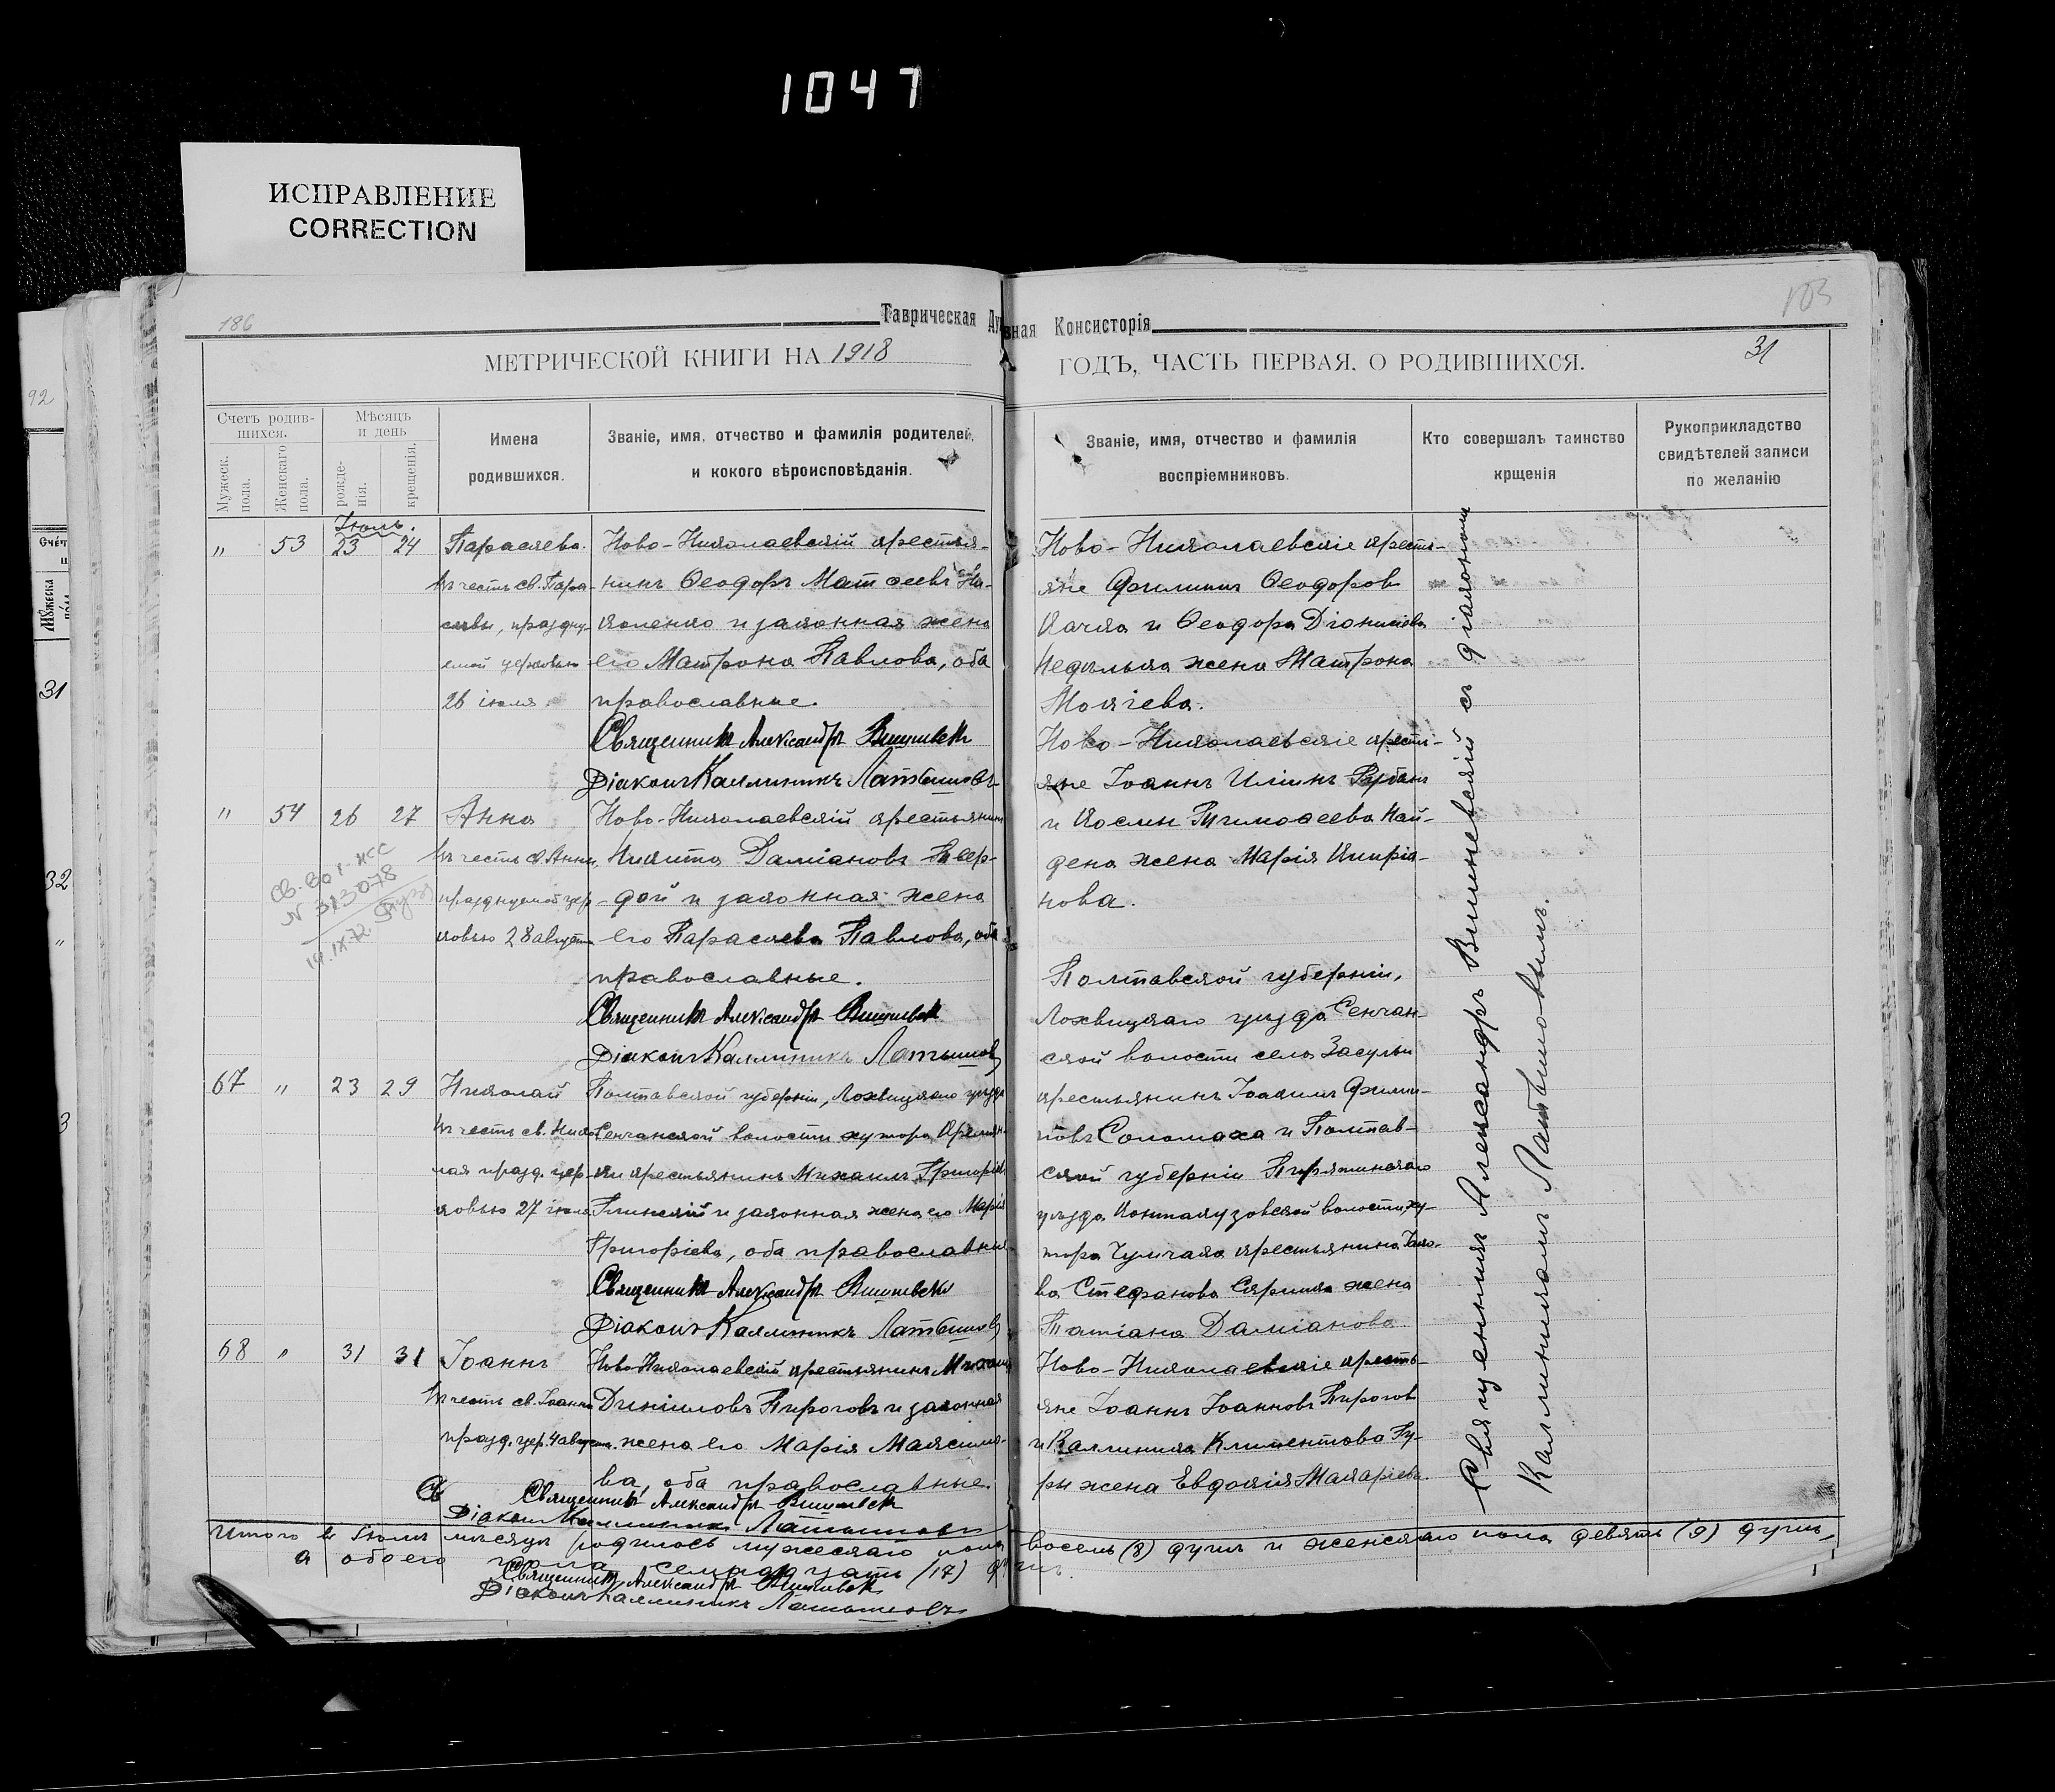 1047
ИСПРАВЛЕНИЕ
CORRECTION
186
Таврическая Духовная Консисторія
103
МЕТРИЧЕСКОЙ КНИГИ НА 1918
ГОДЪ, ЧАСТЬ ПЕРВАЯ, О РОДИВШИХСЯ.
31
Счетъ родив-
шихся.
Мужеск. пола.
Женскаго пола.
Мѣсяцъ
и день
рожде-
нія.
крещенія.
Имена
родившихся.
Званіе, имя, отчество и фамилія родителей,
и кокого вѣроисповѣданія.
Званіе, имя, отчество и фамилія
воспріемниковъ.
Кто совершалъ таинство
крщенія
Рукоприкладство
свидѣтелей записи
по желанію
92
31
32
3
Іюль.
" 53 23 24
Параскева
въ честь св. Пара-
скевы, праздну-
емой церковью
26 іюля
Ново-Николаевскій крестья-
нинъ Ѳеодоръ Матѳеевъ
и законная жена
его Матрона Павлова, оба
православные.
Священникъ Александръ Вишневск
Діаконъ Каллиникъ Латышовъ
Ново-Николаевскіе кресть-
яне Филиппъ Ѳеодоровъ
и Ѳеодора Діонисіева
жена Матрона
Мокіева.
" 54 26 27
Анна
въ честь св. Анны,
празднуемой цер-
ковью 28 августа
Ново-Николаевскій крестьянинъ
Никита Даміановъ Твер-
дой и законная жена
его Параскева Павлова, оба
православные.
Священникъ Александръ Вишневск
Діаконъ Каллиникъ Латышовъ
Ново-Николаевскіе кресть-
яне Іоаннъ Иліинъ Рубанъ
и Тимоѳеева Най-
дена жена Марія Кипріа-
нова.
№ 313078
19.IX.72.
67 " 23 29
Николай
въ честь св. Нико-
лая празд. цер-
ковью 27 іюля
Полтавской губерніи, Лохвицкаго уѣзда
Сенчанской волости хутора
крестьянинъ Михаилъ Григорьевъ
Глинскій и законная жена его Марія
Григоріева, оба православные
Священникъ Александръ Вишневск
Діаконъ Каллиникъ Латышовъ
Полтавской губерніи,
Лохвицкаго уѣзда Сенчан-
ской волости села Засулья
крестьянинъ Іоакимъ Филип-
повъ Соломаха и Полтав-
ской губерніи Пирятинскаго
уѣзда волости ху-
тора крестьянина Іако-
ва Стефанова жена
Татіана Даміанова
68 " 31 31
Іоаннъ
въ честь св. Іоанна
празд. цер. 4 августа
Ново-Николаевскій крестьянинъ Михаилъ
Даніиловъ Пироговъ и законная
жена его Марія Максимо-
ва, оба православные.
Священникъ Александръ Вишневск
Діаконъ Каллиникъ Латышовъ
Ново-Николаевскіе кресть-
яне Іоаннъ Іоанновъ Пироговъ
и Каллиника Климентова Гу-
ры жена Евдокія Макаріева.
Священникъ Александръ Вишневскій съ діакономъ
Каллиникомъ Латышовымъ.
Итого въ Іюлѣ мѣсяцѣ родилось мужескаго пола восемь (8) душъ и женскаго пола девять (9) душъ,
а обоего пола семнадцать (17) душъ.
Священникъ Александръ Вишневск
Діаконъ Каллиникъ Латышовъ